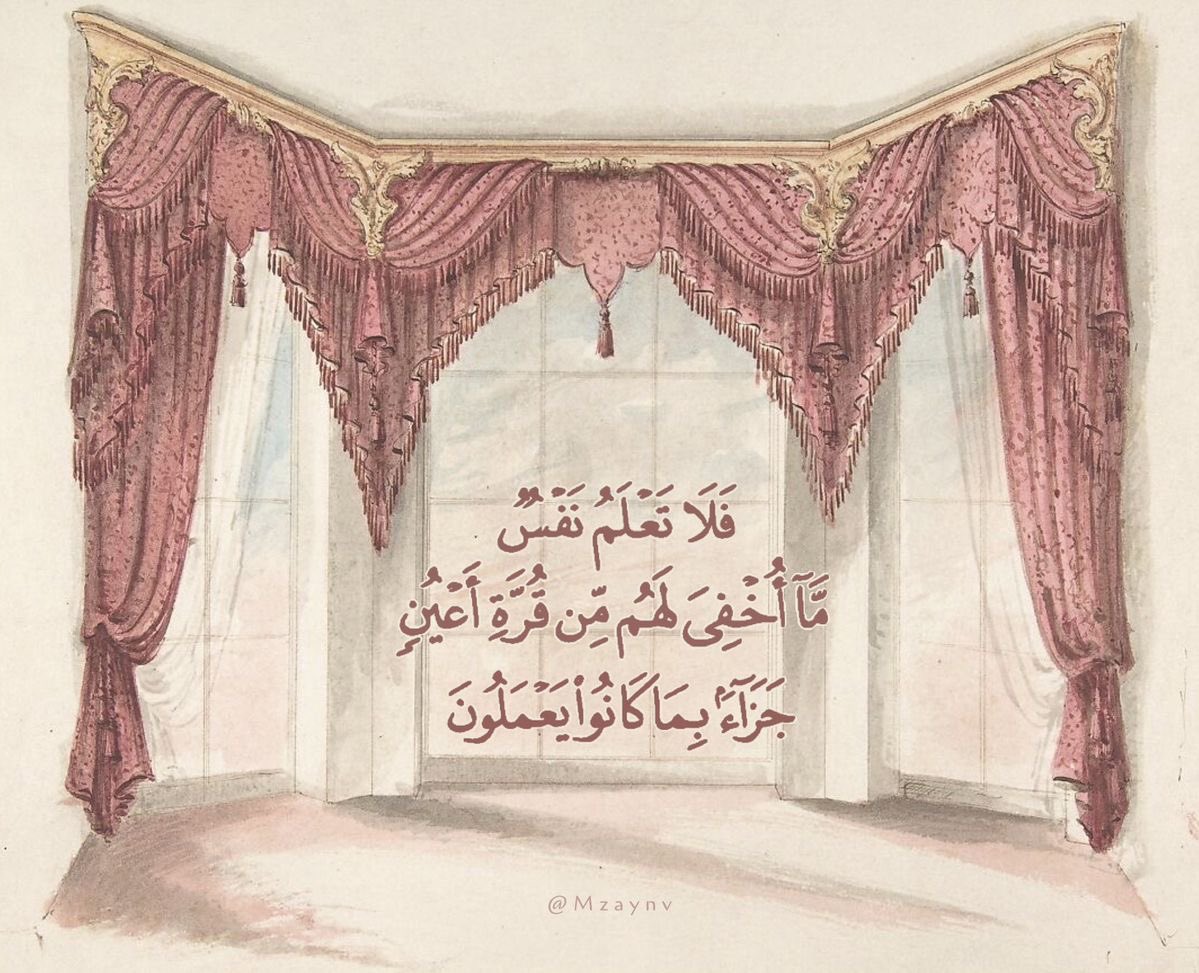 فَلَا تَعْلَمُ نَفْسٌ
مَّآ أُخْفِىَ لَهُم مِّن قُرَّةِ أَعْيُنٍ
جَزَآءًۢ بِمَا كَانُوا۟ يَعْمَلُونَ
@Mzaynv